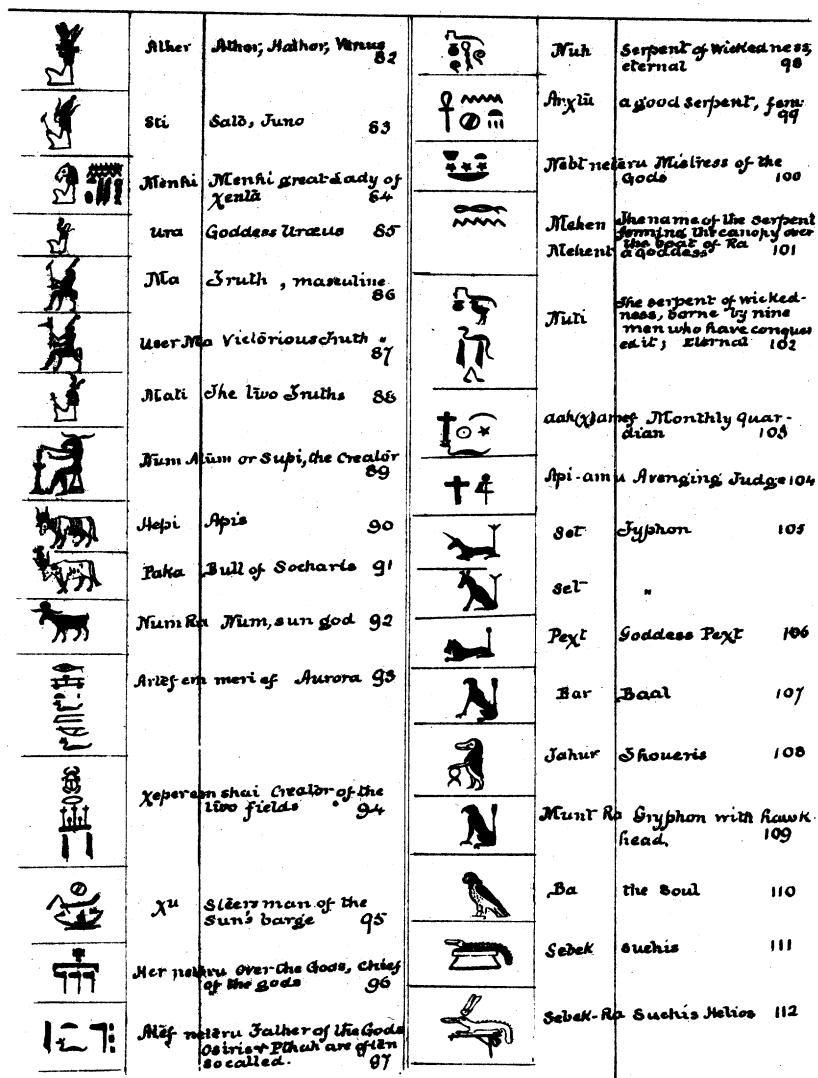 Ather Athor, Hathor, Venus
82
Sti Satō, Juno 83
Menhi Menhi great Lady of
Xentā 84
Ura Goddess Uræus 85
Ma Truth, masculine
86
User Ma Victorious Truth "
87
Mati The two Truths 88
Num Num or Supi, the Creator
89
Hepi Apis 90
Paka Bull of Socharis 91
Num Ra Num, sun god 92
em meri ef Aurora 93
Xeperem shai Creator of the
two fields 94
Xu Steersman of the
Sun's barge 95
Her neteru Over the Gods, Chief
of the gods 96
Atef neteru Father of the Gods
Osiris & Pthah are often
so called. 97
Nuh Serpent of wickedness,
eternal 98
Anxtū a good serpent, fem:
99
Nebt neteru Mistress of the
Gods 100
Mehen The name of the serpent
forming the canopy over
the boat of Ra
Mehent a goddess 101
Nuti The serpent of wicked-
ness, borne by nine
men who have conquer
ed it; Eternal 102
Monthly guar-
dian 103
Api-amu Avenging Judge 104
Set Typhon 105
Set "
Pext Goddess Pext 106
Bar Baal 107
Tahur Thoueris 108
Munt Ra Gryphon with hawk-
head, 109
Ba the Soul 110
Sebek Suchis 111
Sebek-Ra Suchis Helios 112